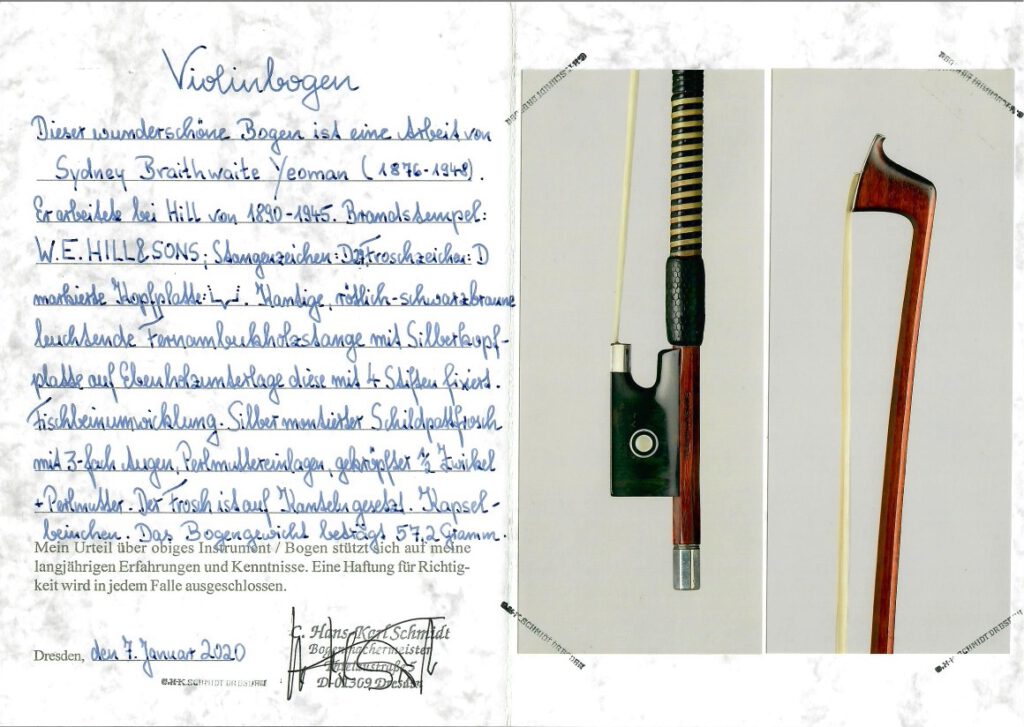 Violinbogen
Dieser wunderschöne Bogen ist eine Arbeit von
Sydney Braithwaite Yeoman (1876-1948).
Er arbeitete bei Hill von 1890-1945. Brandstempel:
W.E. HILL & SONS; Stangenzeichen: Froschzeichen: D
markierte Kopfplatte: . Kantige, rötlich-schwarzbraune
leuchtende Fernambukholzstange mit Silberkopf-
platte auf Ebenholzunterlage diese mit 4 Stiften fixiert.
Fischbeinumwicklung. Silber montierter Schildpattfrosch
mit 3-fach Augen, Perlmuttereinlagen, gekröpfter ½ Zwikel
+ Perlmutter. Der Frosch ist auf Kanteln gesetzt. Kapsel-
beinchen. Das Bogengewicht beträgt 57,2 Gramm.
Mein Urteil über obiges Instrument / Bogen stützt sich auf meine
langjährigen Erfahrungen und Kenntnisse. Eine Haftung für Richtig-
keit wird in jedem Falle ausgeschlossen.
C. Hans-Karl Schmidt
Bogenmachermeister
D-01309 Dresden
Dresden, den 7. Januar 2020
C.H-K.SCHMIDT DRESDEN
C.H-K.SCHMIDT DRESDEN
C.H-K.SCHMIDT DRESDEN